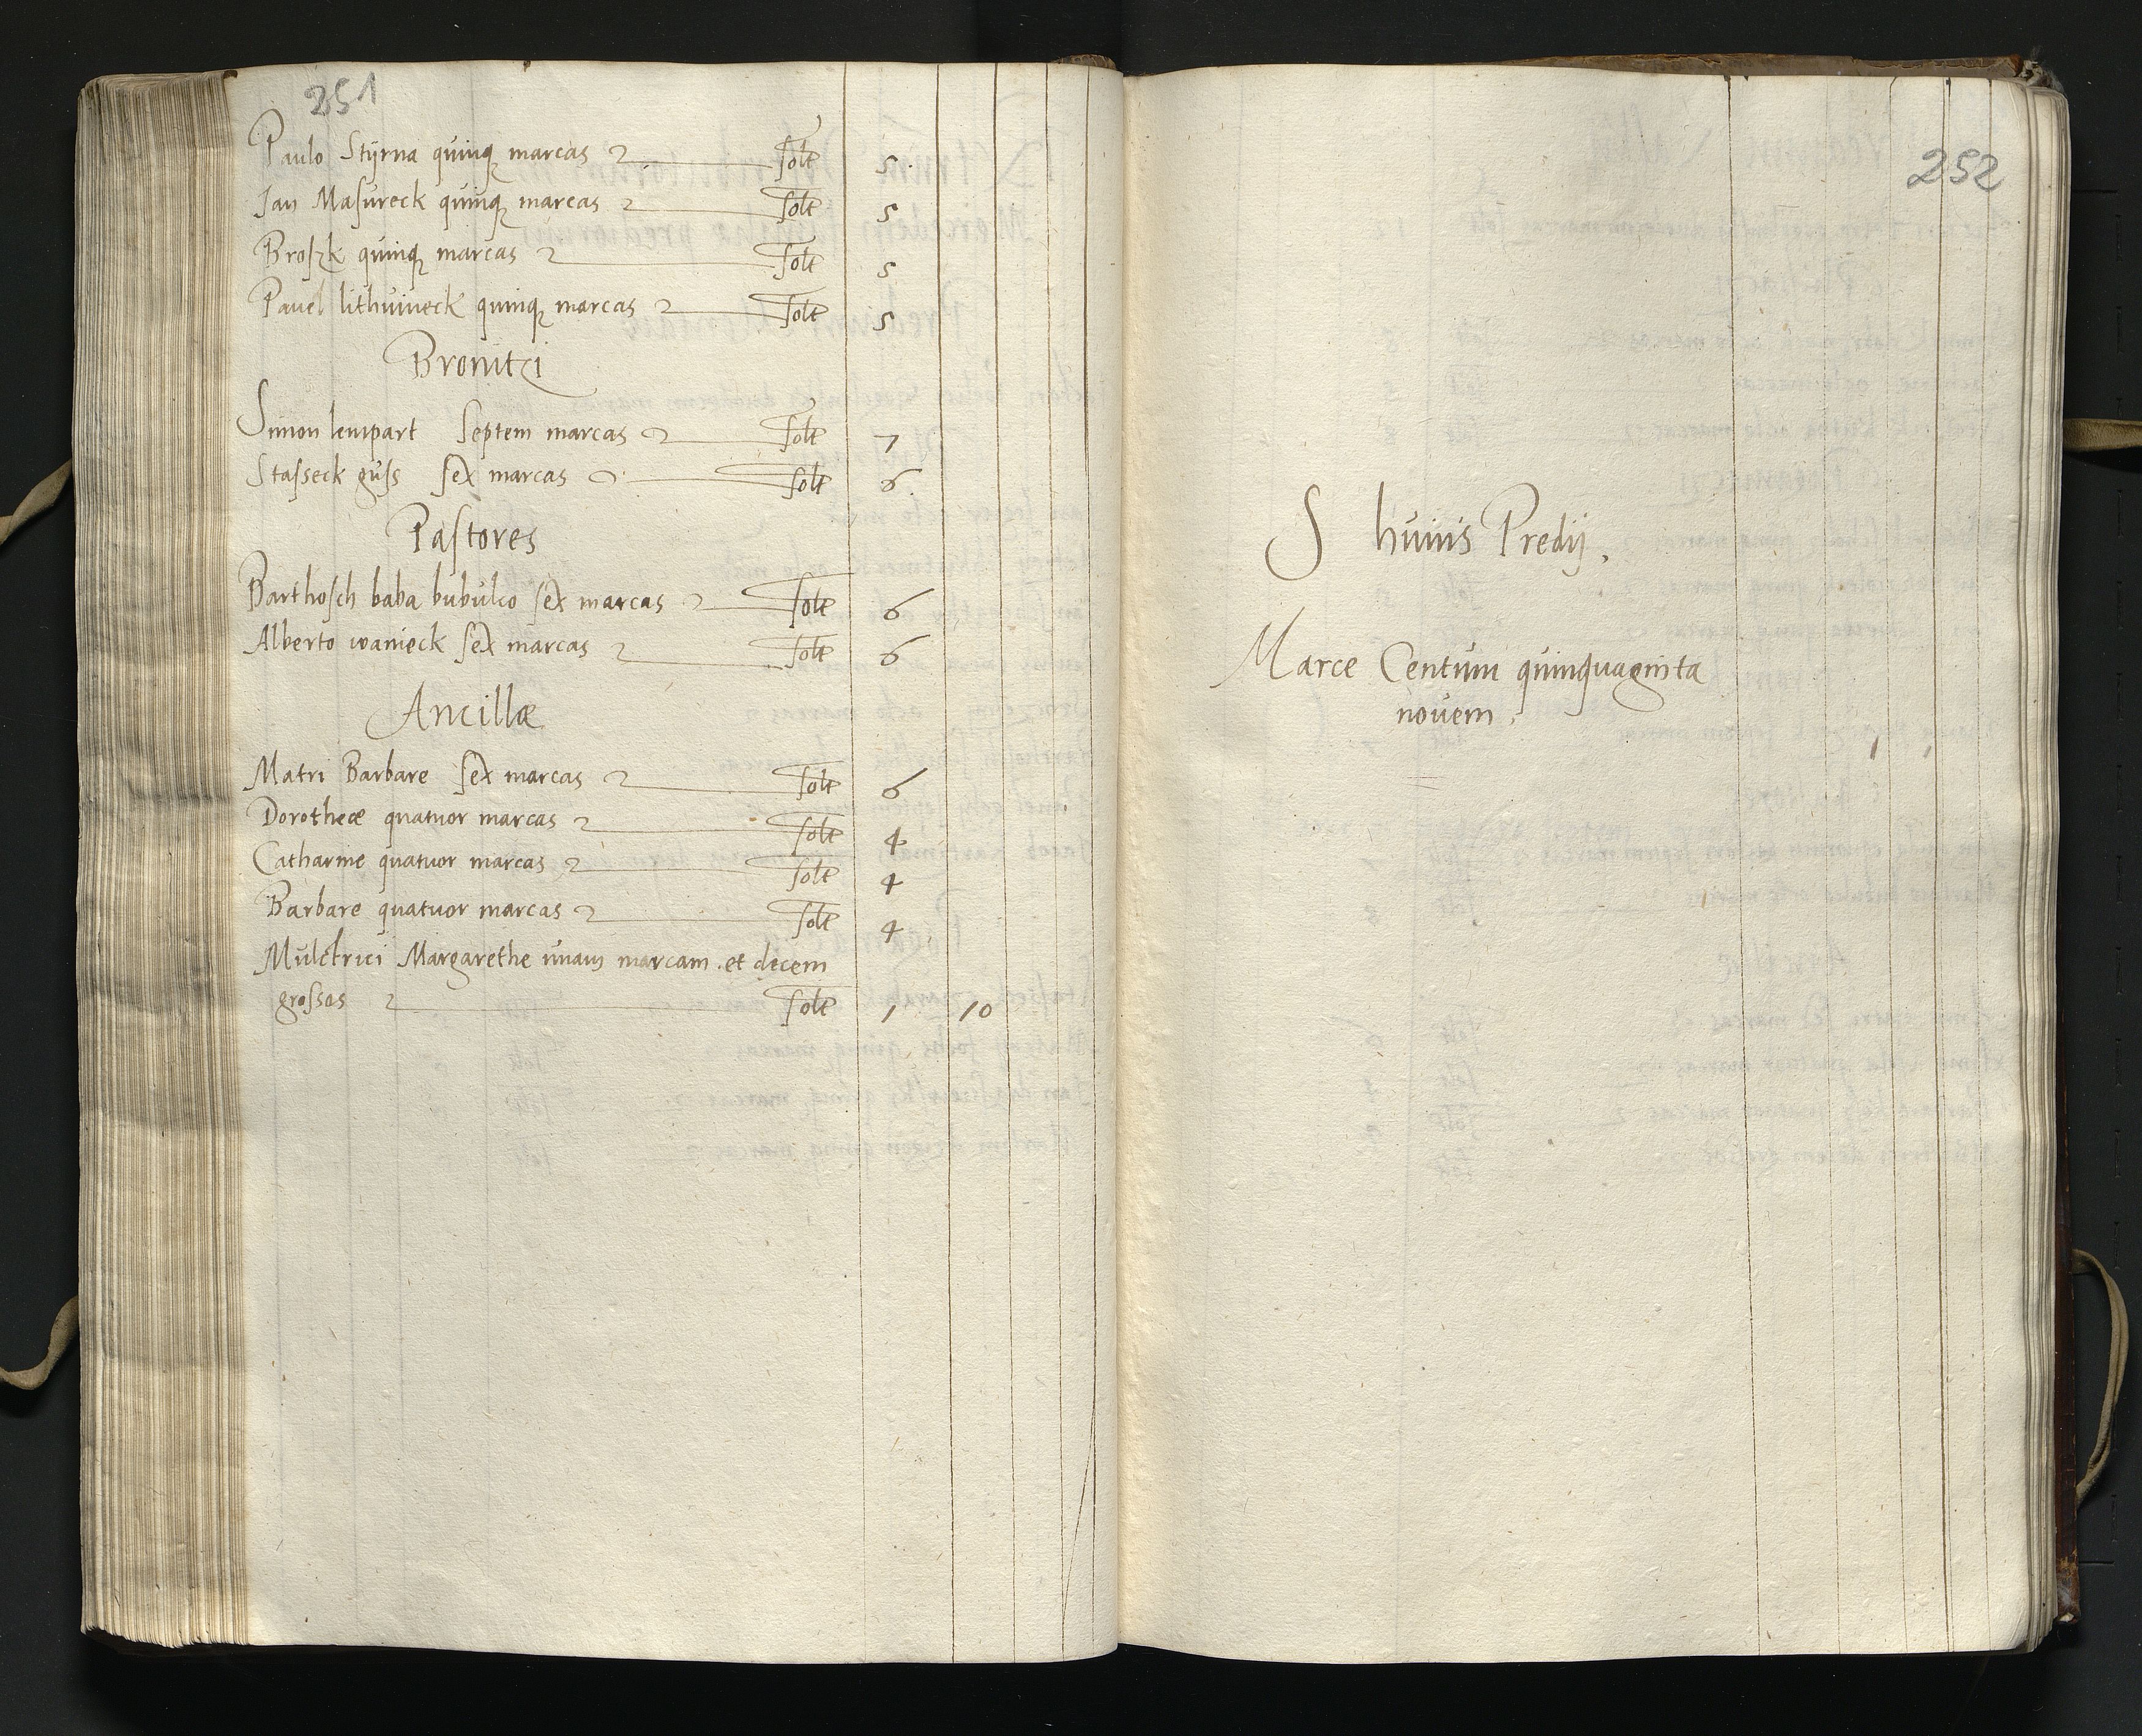 251
Paulo Stÿrna quinq marcas solt 5
Jan Masureck quinq marcas solt 5
Broszk quinq marcas solt 5
Pauel lithuineck quinq marcas solt 5
Bronitzi
Simon lempart Septem marcas solt 7
Stasseck guss sex marcas solt 6
Pastores
Barthosch baba bubulco sex marcas solt 6
Alberto wanieck sex marcas solt 6
Ancillæ
Matri Barbare sex marcas solt 6
Dorotheæ quatuor marcas solt 4
Catharine quatuor marcas solt 4
Barbare quatuor marcas solt 4
Mulctrici Margarethe unam marcam et decem
grossos solt 1 10
252
S huius Predij
Marce Centum quinquaginta
novem